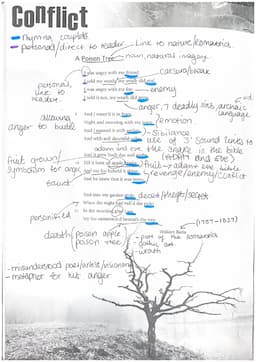 Conflict
rhyming couplets
personal/direct to reader
Link to nature/romantics.
A Poison Tree
noun, natural imagery
I was angry with my friend;
caesura/break
personal link to reader.
I told my wrath, my wrath did end.
I was angry with my foe:
enemy
I told it not, my wrath did grow.
anger, 7 deadly sins, archaic language
allowing anger to build
And I water'd it in fears,
Night and morning with my tears;
emotion
And I sunned it with
Sibilance
And with soft deceitful
use of 'S' sound links to adam and eve the snake in the bible
And it grew both day and night,
(Adam and Eve)
fruit grown/ symbolism for anger
Till it bore an apple
fruit - adam and eve bible
And my foe beheld it
revenge/enemy/conflict
And he knew that it was mine,
And into my garden stole
deceit/theft/secret
When the night had veil'd the pole;
personified
In the morning glad I see
My foe outstretch'd beneath the tree.
(1757-1827)
William Blake
death
poison apple
poison tree
- part of the romantics
- gothic art
- wrath
- misunderstood poet/artist/visionary
- metaphor for his anger